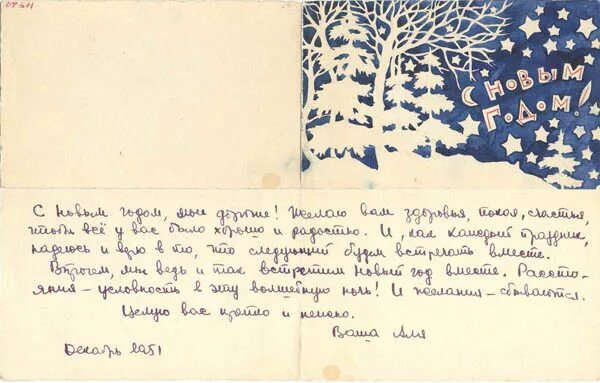 С НОВЫМ
ГОДОМ!
С Новым годом, мои дорогие! Желаю вам здоровья, покоя, счастья,
чтобы всё у вас было хорошо и радостно. И, как каждый праздник,
надеюсь и верю в то, что следующий будем встречать вместе.
Впрочем, мы ведь и так встретим Новый год вместе. Расстоя-
яния – условность в эту волшебную ночь! И желания – сбываются.
Целую вас крепко и нежно.
Ваша Аля
Декабрь 1951